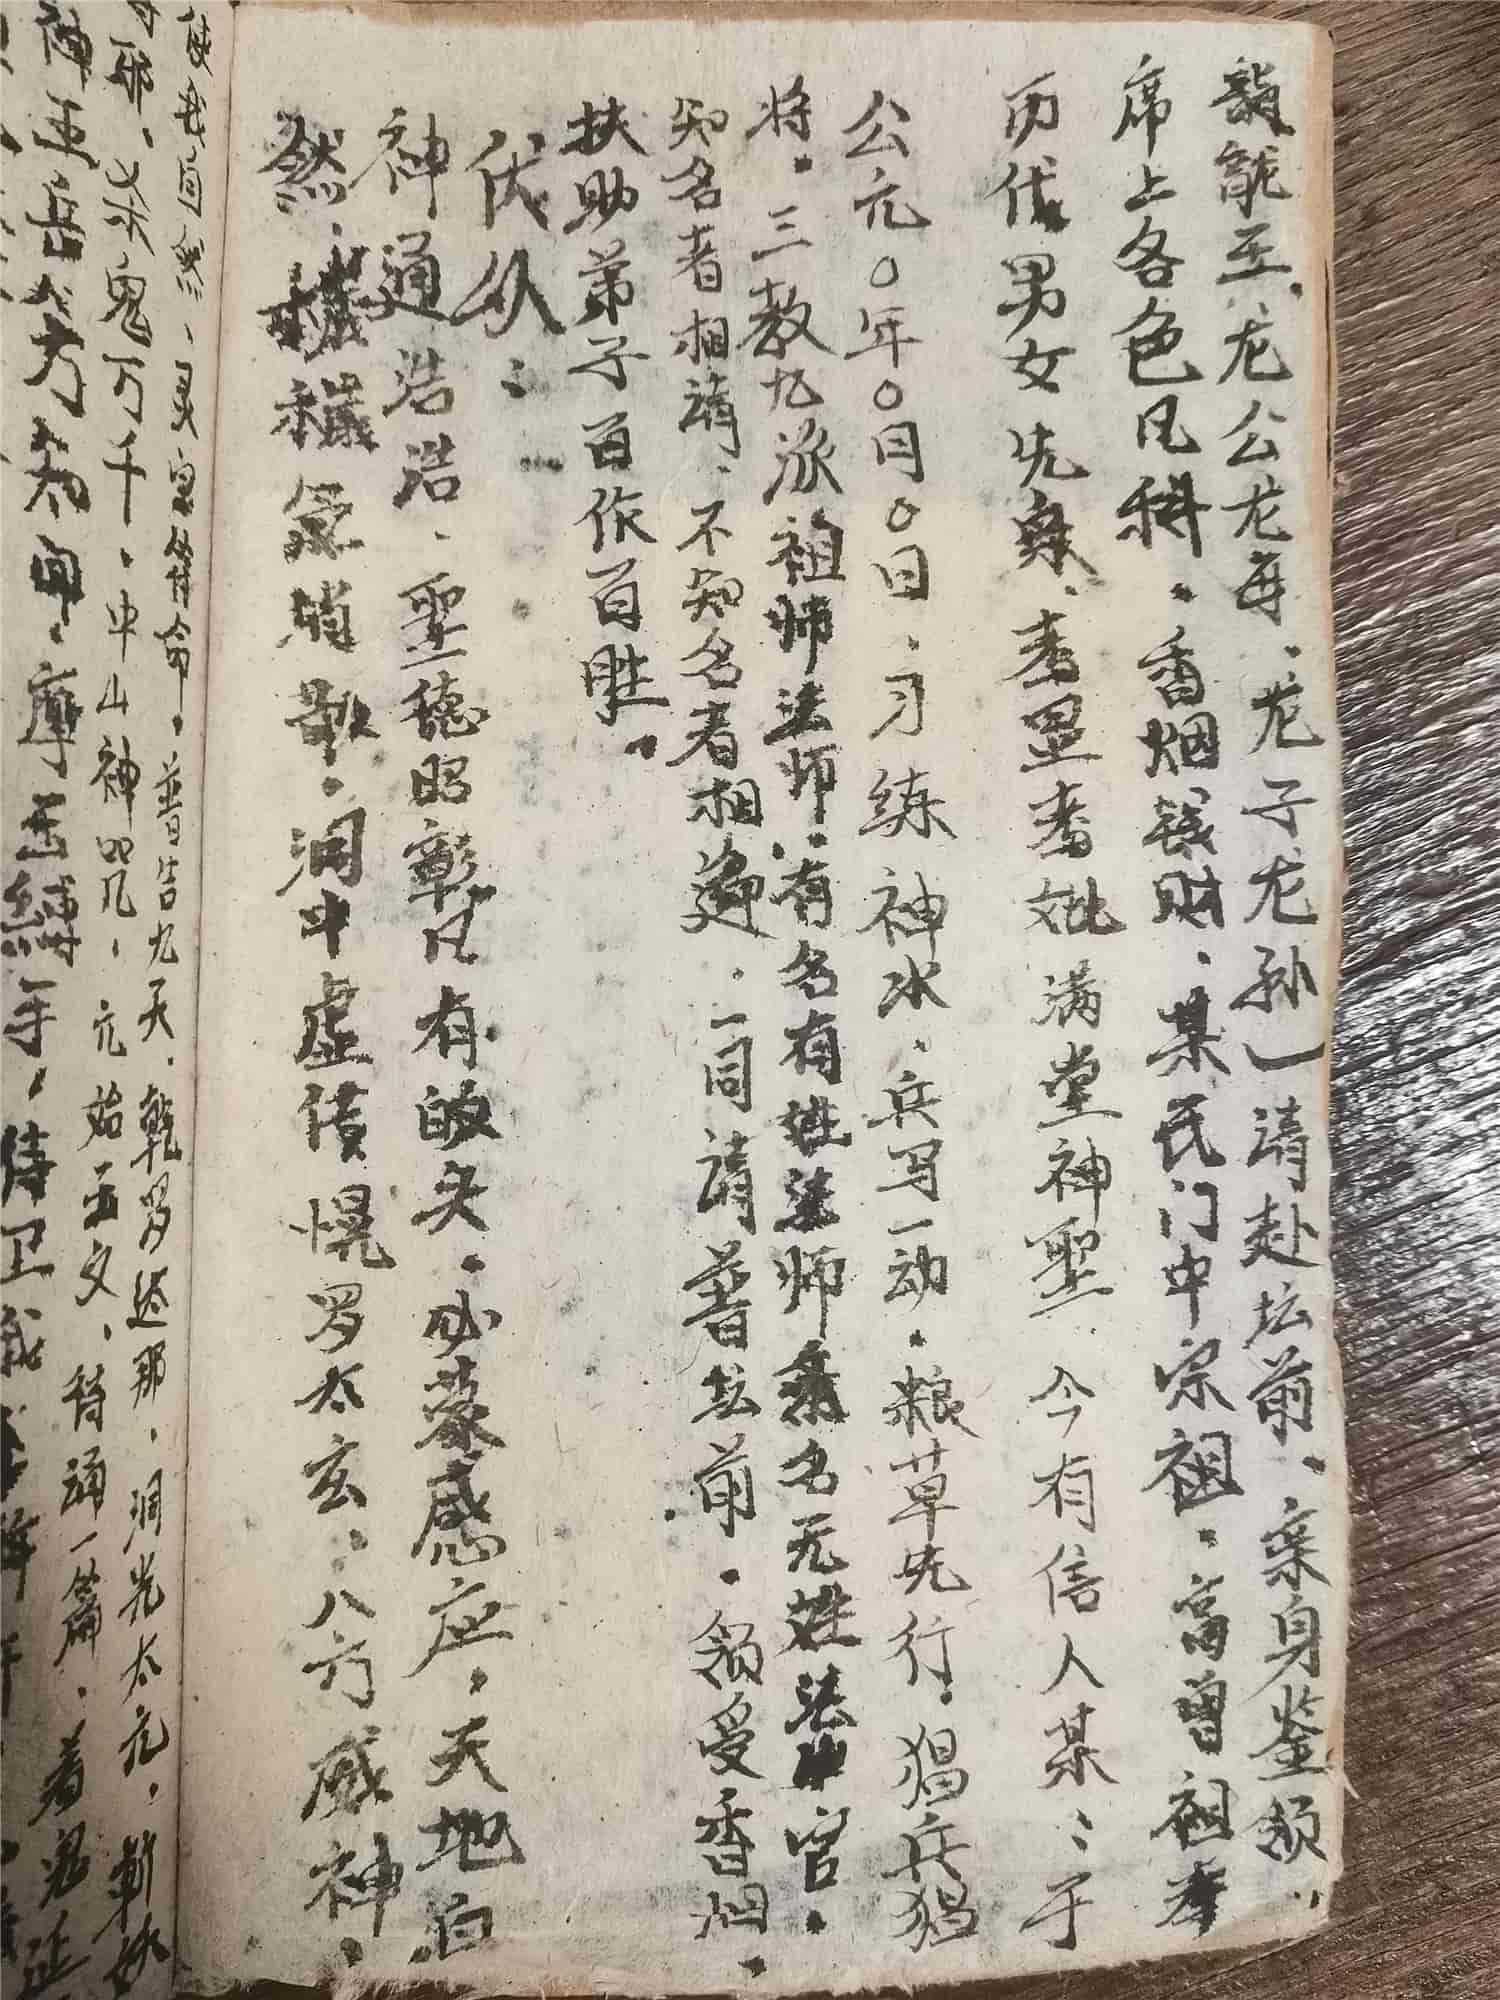 龙王、龙公龙母、龙子龙孙一请赴坛前、亲身鉴领、
席上各色凡料、香烟钱财、某氏门中宗祖、高曾祖考
历代男女先灵、考墨考妣满堂神圣、今有信人某：于
公元〇年〇月〇日、习练神水、兵马一动、粮草先行、猖兵猖
将、三教九流祖师法师、有名有姓法师无名无姓法官、
知名者相请、不知名者相邀、一同请普坛前、领受香烟、
扶助弟子百作百胜、
伏以：
神通浩浩、聖德昭彰凡有的求、必蒙感应、天地自
然、秽氛消散、洞中虚伩愰罗太玄、八方威神、
使我自然、灵宝符命、普告九天、乾罗达那、洞光太元、斩妖
杀鬼万千、中山神咒、元始玉文、持诵一篇、着鬼延